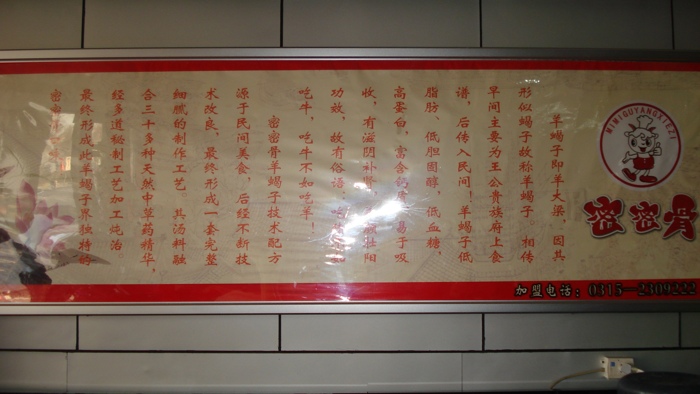 MIMIGUYANGXIEZI
密密骨
羊蝎子即羊大梁，因其
形似蝎子故称羊蝎子。相传
早间主要为王公贵族府上食
谱，后传入民间！羊蝎子低
脂肪、低胆固醇、低血糖，
高蛋白，富含钙质，易于吸
收，有滋阴补肾、颜壮阳
功效，故有俗语：吃
吃牛，吃牛不如吃羊！
密密骨羊蝎子技术配方
源于民间美食，后经不断技
术改良，最终形成一套完整
细腻的制作工艺。其汤料融
合三十多种天然中草药精华，
经多道秘制工艺加工炖治。
最终形成此羊蝎子界独特的
密密
加盟电话：0315—2309222